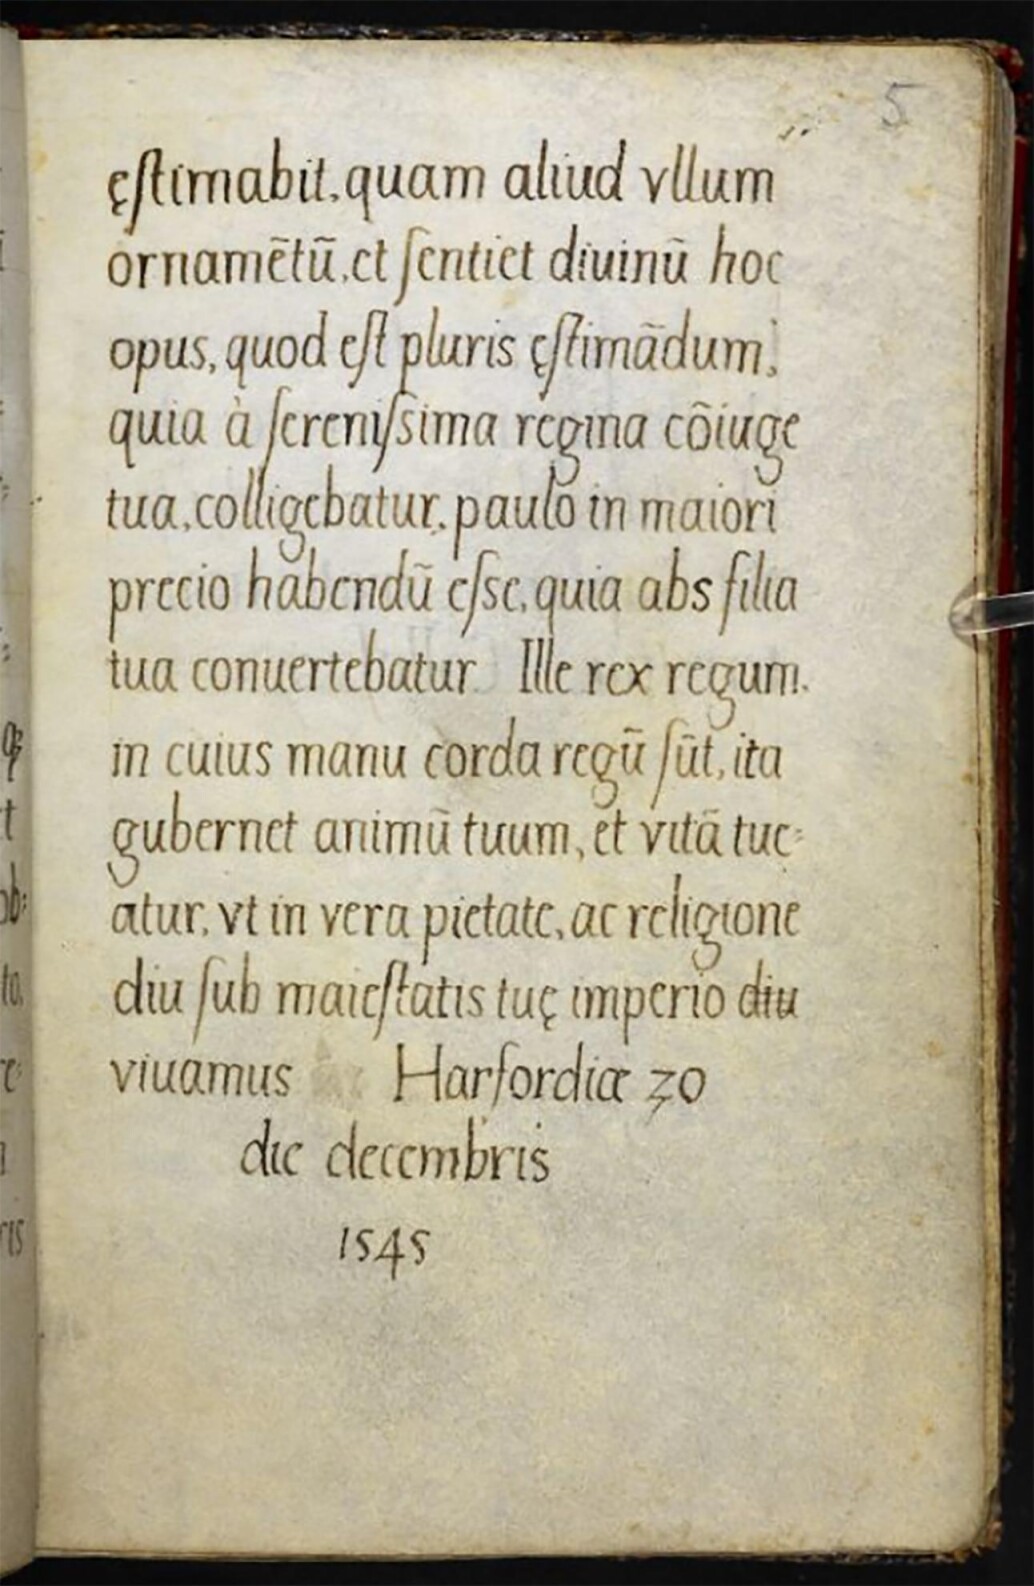 5
ęſtimabit, quam aliud vllum
ornamētū, et ſentiet diuinū hoc
opus, quod eſt pluris ęſtimādum,
quia à ſereniſsima regina cōiuge
tua, colligebatur, paulo in maiori
precio habendū eſse, quia abs filia
tua conuertebatur Ille rex regum.
in cuius manu corda regū ſūt, ita
gubernet animū tuum, et vitā tue=
atur, vt in vera pietate, ac religione
diu ſub maieſtatis tuę imperio diu
viuamus Harfordiæ 30
die decembris
1545